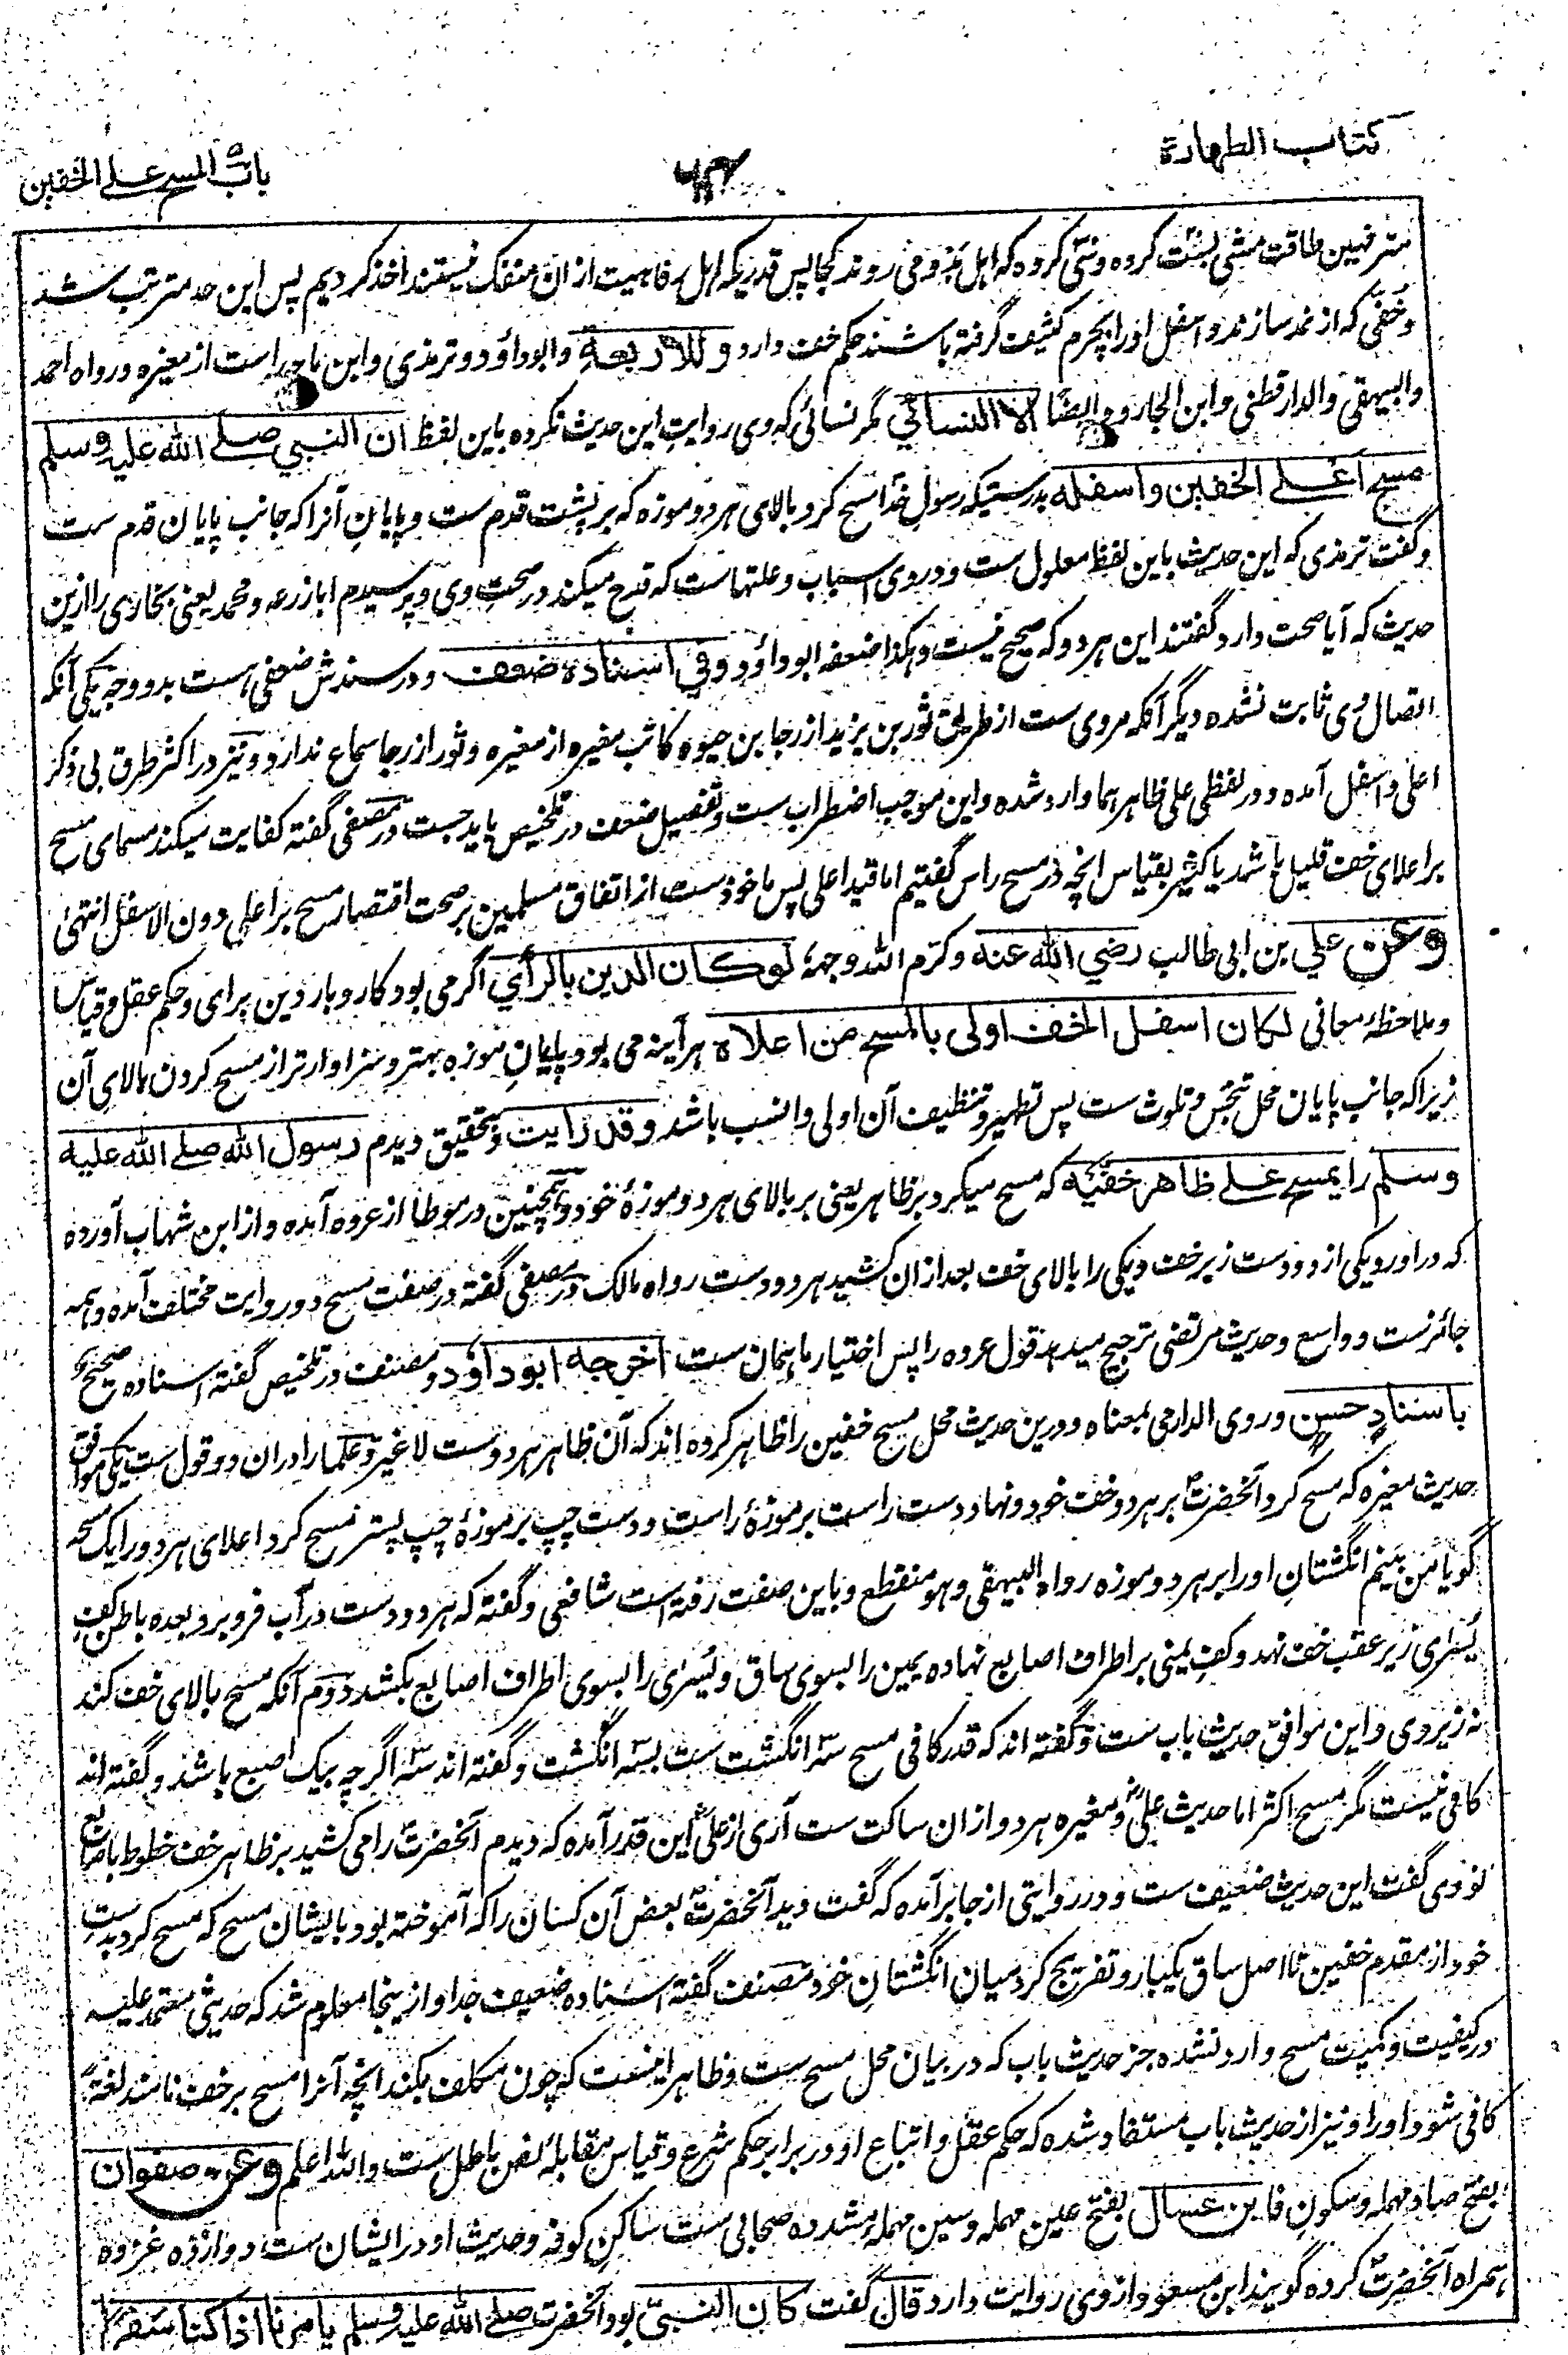 كتاب الطهارة
باب المسح على الخفين
مترفهین طاقت مشی بست کروه و سی کروه که اهل بدو می روند کجا پس قدریکه اهل رفاهیت ازان منفک نیستند اخذ کردیم پس این حد مترتب شد
وخفی که از نمد سازند و اسفل او را بچرم کثیف گرفته باشند حکم خف دارد وللاربعة وابوداؤد وترمذی وابن ماجه است از مغیره ورواه احمد
والبیهقی والدارقطنی وابن الجارود ایضا الا النسائي مگر نسائی که وی روایت این حدیث نکرده باین لفظ ان النبي صلى الله عليه وسلم
مسح اعلى الخفين واسفله بدرستیکه رسول خدا مسح کرد بالای هر دو موزه که بر پشت قدم ست و پایان آنرا که جانب پایان قدم ست
وگفت ترمذی که این حدیث باین لفظ معلول ست و در وی اسباب و علتهاست که قدح میکند در صحت وی و پرسیدم ابا زرعه و محمد یعنی بخاری را ازین
حدیث که آیا صحت دارد گفتند این هر دو که صحیح نیست و هکذا ضعفه ابوداؤد وفي اسناده ضعف و در سندش ضعفی هست بدو وجه یکی آنکه
اتصال وی ثابت نشده دیگر آنکه مروی ست از طریق ثور بن یزید از رجا بن حیوه کاتب مغیره از مغیره و ثور از رجا سماع ندارد و نیز در اکثر طرق بی ذکر
اعلی و اسفل آمده و در لفظی علی ظاهرهما وارد شده و این موجب اضطراب ست و تفصیل ضعف در تلخیص باید جست در مصفی گفته کفایت میکند مسمای مسح
بر اعلای خف قلیل باشد یا کثیر بقیاس انچه در مسح راس گفتیم اما قید اعلی پس ماخوذ ست از اتفاق مسلمین بر صحت اقتصار مسح بر اعلی دون الاسفل انتهی
وعن علي بن ابی طالب رضي الله عنه وکرم الله وجهه لوكان الدين بالرأي اگر می بود کار و بار دین برای و حکم عقل و قیاس
وملاحظه معانی لكان اسفل الخف اولى بالمسح من اعلاه هرآینه می بود پایان موزه بهتر و سزاوارتر از مسح کردن بالای آن
زیرا که جانب پایان محل تنجس و تلوث ست پس تطهیر و تنظیف آن اولی و انسب باشد وقد رايت و بتحقیق دیدم رسول الله صلى الله عليه
وسلم را يمسح على ظاهر خفيه که مسح میکرد بر ظاهر یعنی بر بالای هر دو موزهٔ خود و همچنین در موطا از عروه آمده و از ابن شهاب آورده
که در آورد یکی از دو دست زیر خف و یکی را بالای خف بعد ازان کشید هر دو دست رواه مالک در مصفی گفته در صفت مسح دو روایت مختلف آمده و همه
جائزست و واسع و حدیث مرتضی ترجیح میدهد قول عروه را پس اختیار ما همان ست اخرجه ابوداؤد ومصنف در تلخیص گفته اسناده صحیح
باسناد حسن وروی الدارمی بمعناه و درین حدیث محل مسح خفین را ظاهر کرده اند که آن ظاهر هر دو ست لا غیر و علما را دران دو قول ست یکی موافق
حدیث مغیره که مسح کرد آنحضرت بر هر دو خف خود و نهاد دست راست بر موزهٔ راست و دست چپ بر موزهٔ چپ پستر مسح کرد اعلای هر دو را یک مسحه
گویا من بینم انگشتان او را بر هر دو موزه رواه البیهقی وهو منقطع و باین صفت رفته است شافعی و گفته که هر دو دست در آب فرو برد بعده باطن کف
یسری زیر عقب خف نهد و کف یمنی بر اطراف اصابع نهاده یمین را بسوی ساق و یسری را بسوی اطراف اصابع بکشد دوم آنکه مسح بالای خف کند
نه زیر وی و این موافق حدیث باب ست و گفته اند که قدر کافی مسح سه انگشت ست بسه انگشت و گفته اند سه اگرچه بیک اصبع باشد و گفته اند
کافی نیست مگر مسح اکثر اما حدیث علی و مغیره هر دو ازان ساکت ست آری از علی این قدر آمده که دیدم آنحضرت را می کشید بر ظاهر خف خطوط باصابع
نووی گفت این حدیث ضعیف ست و در روایتی از جابر آمده که گفت دید آنحضرت بعض آن کسان را که آموخته بود بایشان مسح که مسح کرد بدست
خود از مقدم خفین تا اصل ساق یکبار و تفریج کرد میان انگشتان خود مصنف گفته اسناده ضعیف جدا و ازینجا معلوم شد که حدیثی معتمد علیه
در کیفیت و کمیت مسح وارد نشده جز حدیث باب که در بیان محل مسح ست و ظاهر اینست که چون مکلف بکند انچه آنرا مسح بر خف نامند لغة
کافی شود او را و نیز از حدیث باب مستفاد شده که حکم عقل و اتباع او در برابر حکم شرع و قیاس بمقابله نص باطل ست والله اعلم وعن صفوان
بفتح صاد مهمله و سکون فا بن عسال بفتح عین مهمله و سین مهمله مشدده صحابی ست ساکن کوفه و حدیث او در ایشان ست دوازده غزوه
همراه آنحضرت کرده گویند ابن مسعود از وی روایت دارد قال گفت كان النبي بود آنحضرت صلى الله عليه وسلم يامرنا اذا كنا سفرا